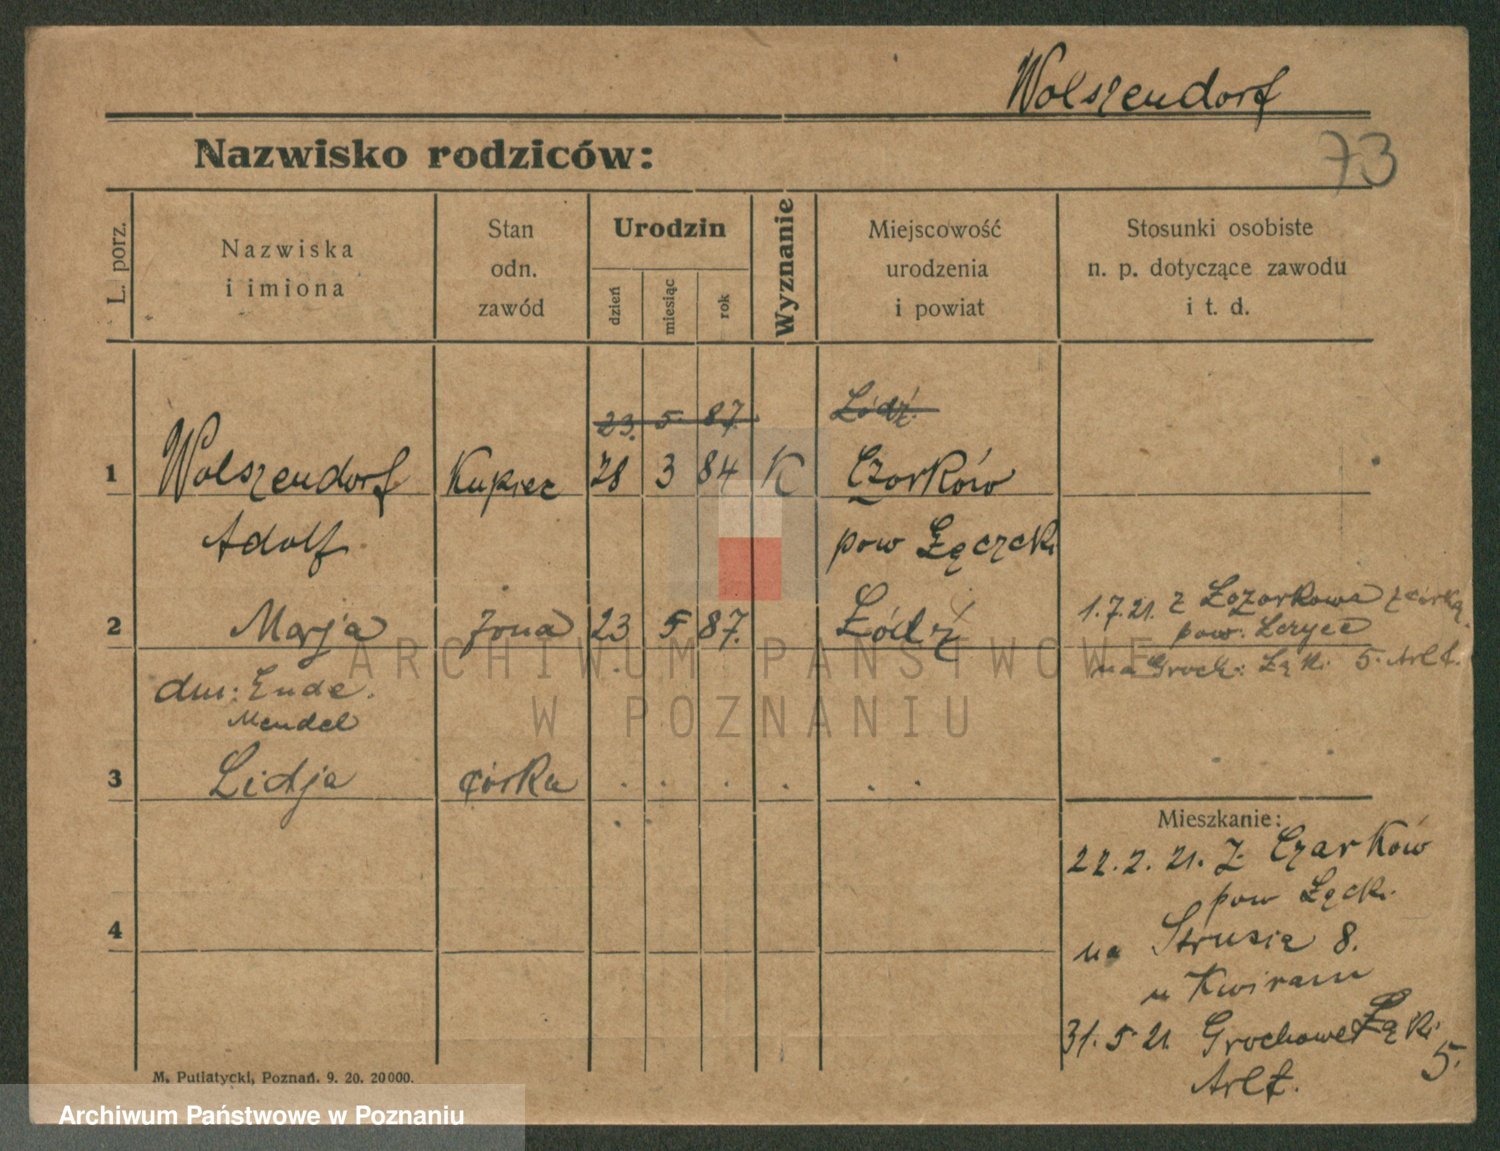 Wolszendorf
73
Nazwisko rodziców:
L. porz.
Nazwiska
i imiona
Stan
odn.
zawód
Urodzin
dzień
miesiąc
rok
Wyznanie
Miejscowość
urodzenia
i powiat
Stosunki osobiste
n. p. dotyczące zawodu
i t. d.
23. 5. 87. Łódź
1 Wolszendorf Kupiec 28 3 84 K Czorków
Adolf pow Łęczcki
2 Marja żona 23 5 87. Łódź
1.7.21. z
pow.
na Groch. Łąki 5. Arlt.
dm: Ende.
Mendel
3 Lidja córka . . . . . .
Mieszkanie:
22.2.21. z Czarków
pow Łęcki
4
na Strusia 8.
u Kwiram
31.5.21. Grochowe Łąki
5.
Arlt.
M. Putiatycki, Poznań. 9. 20. 20000.
ARCHIWUM PAŃSTWOWE
W POZNANIU
Archiwum Państwowe w Poznaniu